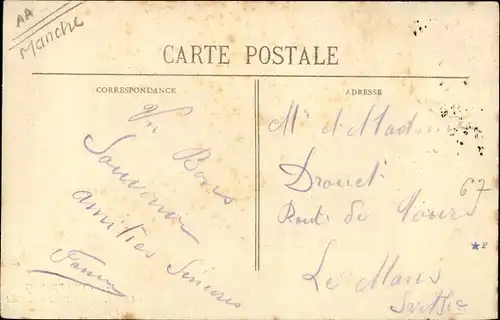 AA
Manche
CARTE POSTALE
CORRESPONDANCE
ADRESSE
Un Bons
Souvenir
amitiés Sincères
Mr et Madame
Drouet
67
Route de Tours
*e
Le Mans
Sarthe